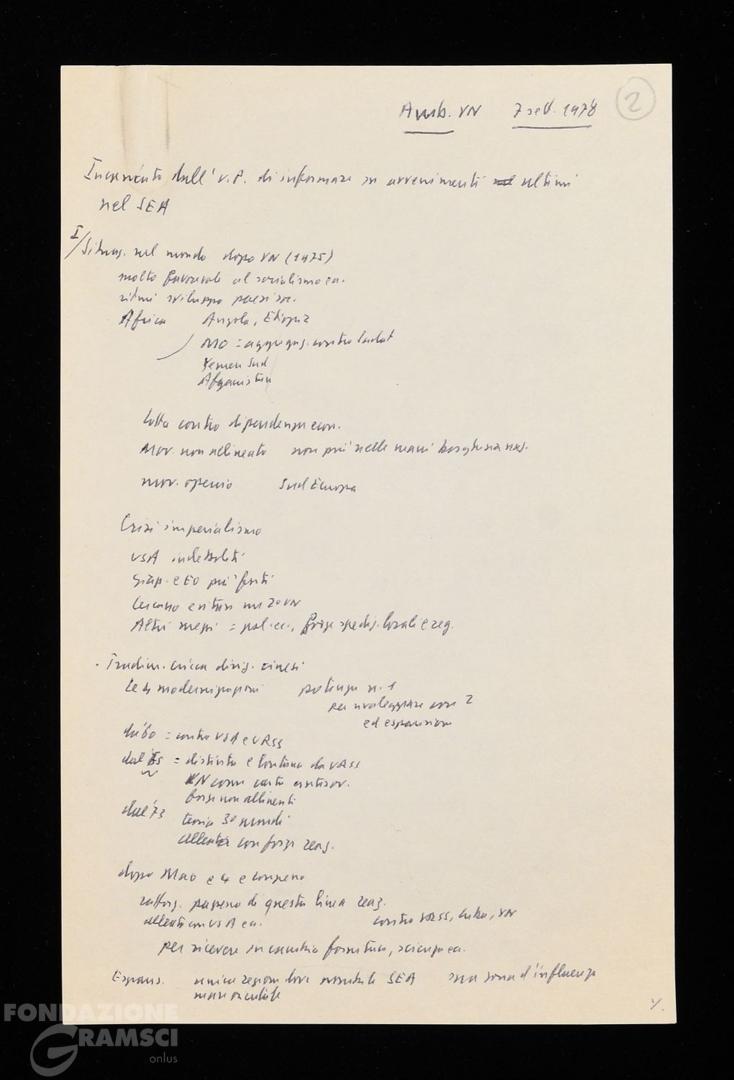 Amb. VN 7 sett. 1978 2
Incaricato dall' U.P. di informare su avvenimenti ultimi
nel SEA
I/ Situaz. nel mondo dopo VN (1975)
molto favorevole al socialismo ecc.
ritmi sviluppo paesi soc.
Africa Angola, Etiopia
MO = aggregaz. contro Sadat
Yemen Sud
Afganistan
Lotta contro dipendenza econ.
Mov. non allineato non più nelle mani borghesia naz.
mov. operaio Sud Europa
Crisi imperialismo
USA indeboliti
Giap. e EO più forti
Cercano evitare un 2° VN
Altri mezzi = pol. ec., forze locali e reaz.
. Tradim. cricca dirig. cinesi
Le 4 modernizzazioni potenza n. 1
per rivaleggiare con 2
ed espansione
da '60 = contro USA e URSS
dal = distinta e lontana da URSS
VN come carta antisov.
forze non allineati
dal '73 teoria 3 mondi
alleanza con forze reaz.
dopo Mao e 4 e compreso
rafforz. di questa linea reaz.
alleati con USA ecc. contro URSS, Cuba, VN
per ricevere in cambio forniture, scienza ecc.
Espans. unica regione dove SEA sua zona d'influenza
FONDAZIONE
GRAMSCI
onlus